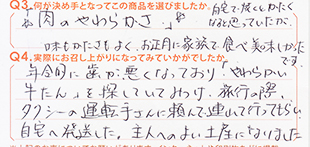 Q3. 何が決め手となってこの商品を選びましたか。
お肉のやわらかさ。 自宅で焼くとかたく
なると思っていたが、
味もかたさもよく、お正月に家族で食べ美味しかった
です。
Q4. 実際にお召し上がりになってみていかがでしたか。
年令的に歯が悪くなっており「やわらかい
牛たん」を探していており、旅行の際、
タクシーの運転手さんに頼んで連いて行ってもらい
自宅へ発送した。主人へのよい土産になりました